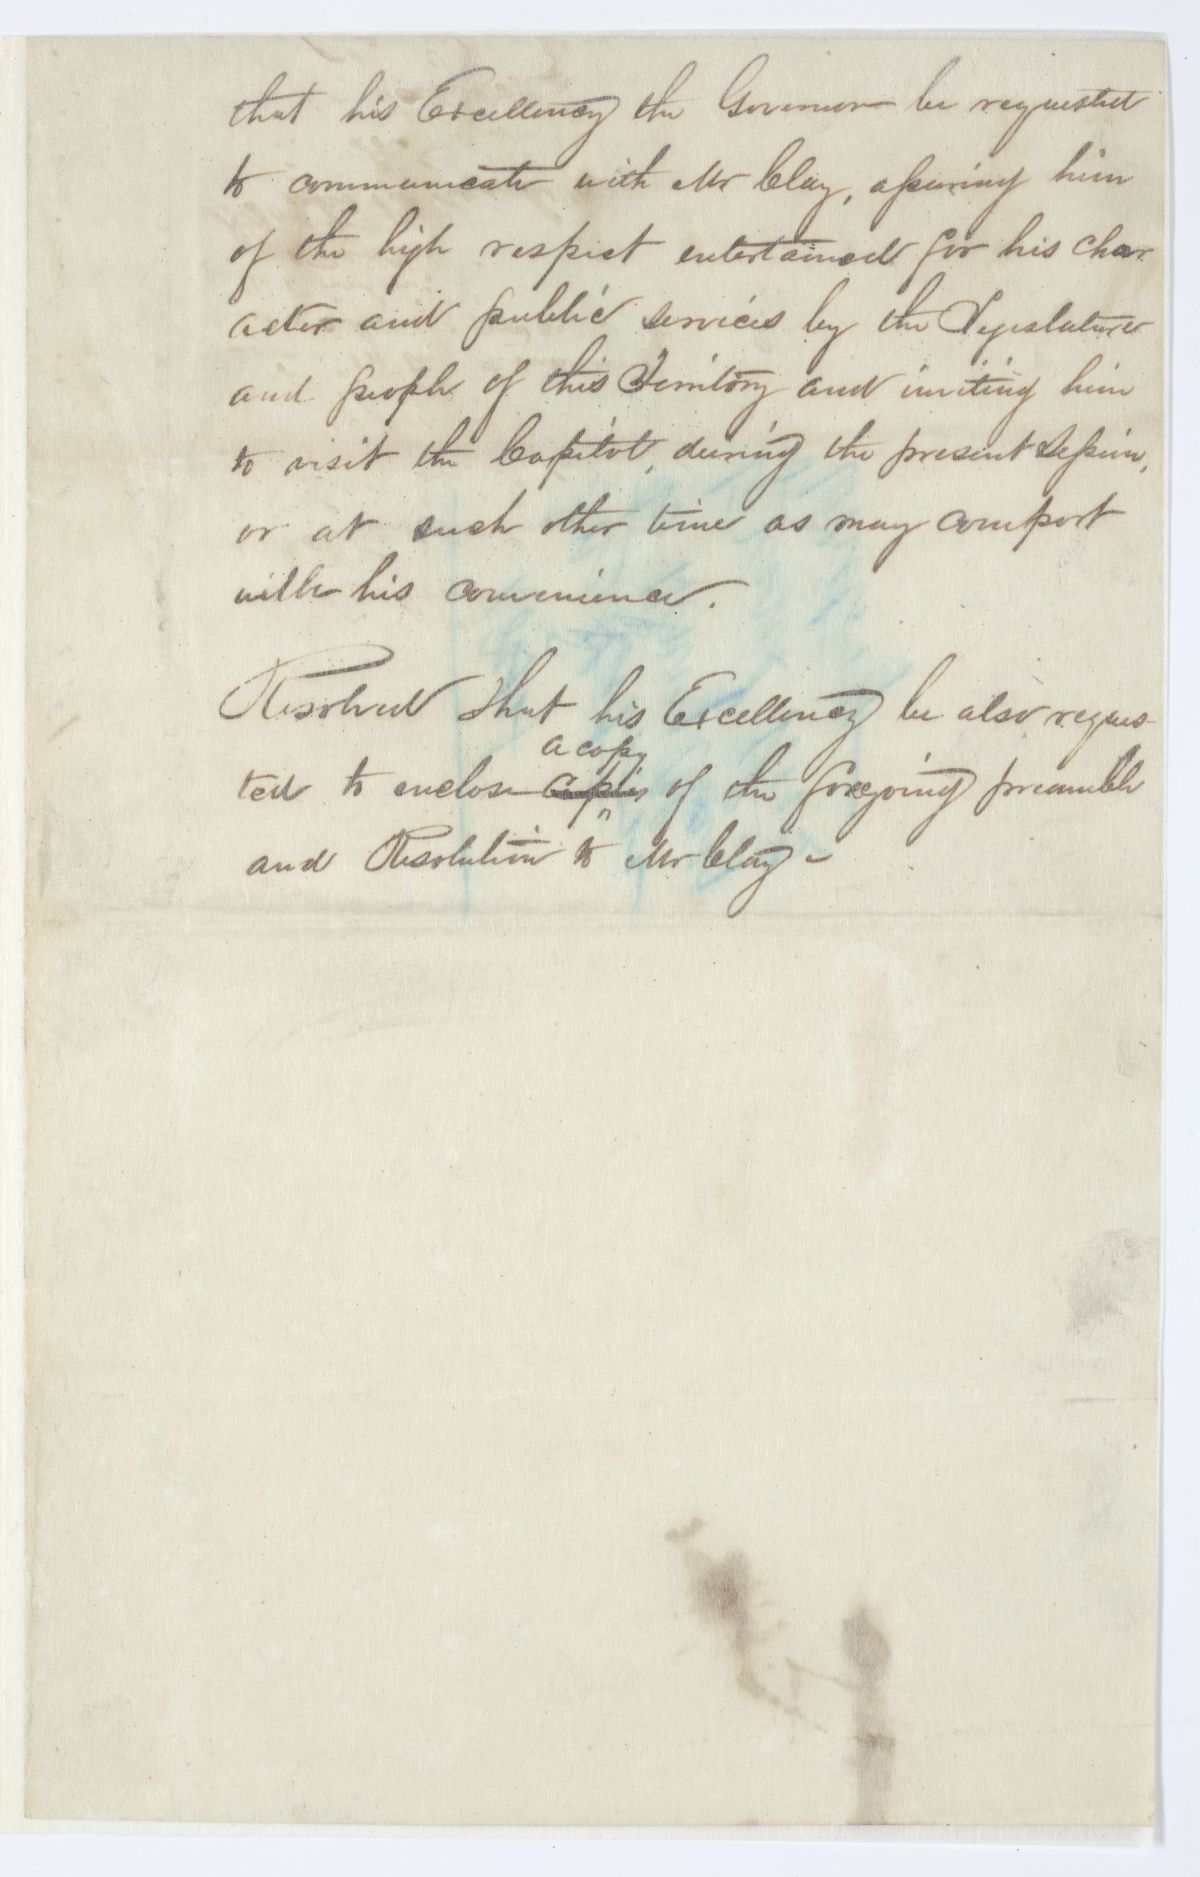 that his Excellency the Governor be requested
to communicate with Mr Clay, assuring him
of the high respect entertained for his char
acter and public services by the Legislature
and people of this Territory and inviting him
to visit the Capitol, during the present Session,
or at such other time as may comport
with his convenience.
Resolved that his Excellency be also reques-
a copy
ted to enclose copies of the foregoing preamble
and Resolution to Mr Clay -